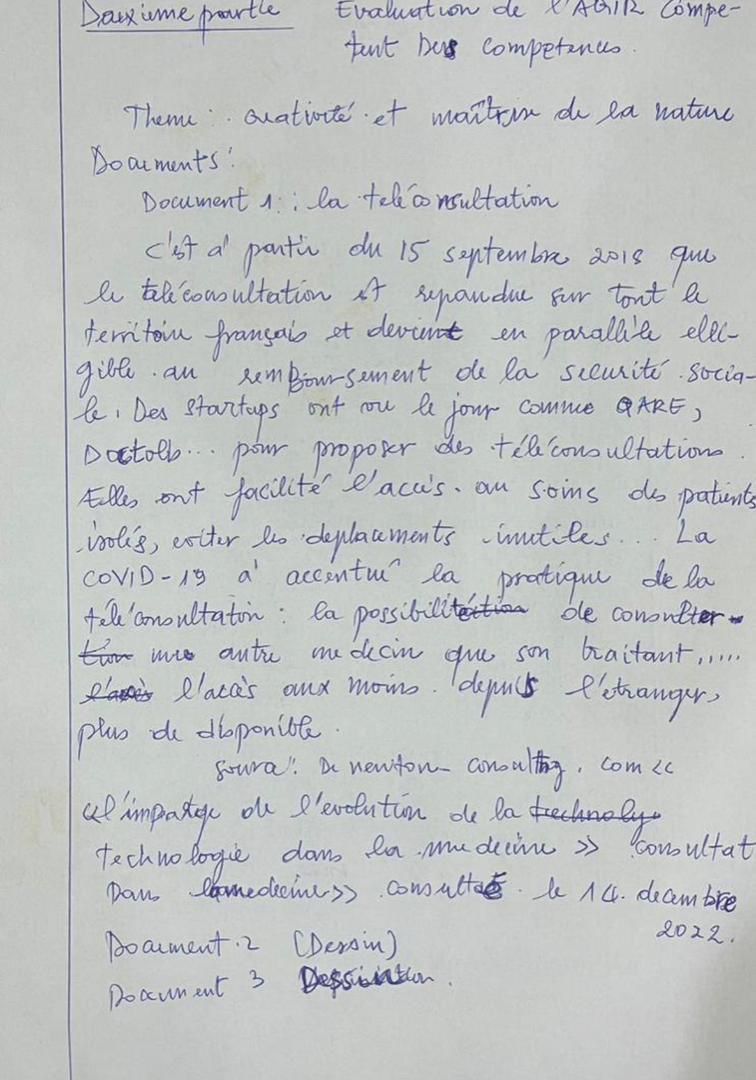 Deuxieme partie Evaluation de l'AGIR Compe-
tent Des competences.
Theme : creativité et maîtrise de la nature
Documents :
Document 1 : la teléconsultation
C'est a' partir du 15 septembre 2018 que
le téléconsultation est repandue sur tout le
territoire français et devient en parallèle elli-
gible au remboursement de la securité socia-
le. Des startups ont vu le jour comme QARE,
Doctolb... pour proposer des téléconsultations.
Elles ont facilité l'accès au soins des patients
isolés, eviter les deplacements inutiles... La
COVID-19 a' accentué la pratique de la
téléconsultaton : la possibilité de consulter
une autre medecin que son traitant,....
l'accès aux moins depuis l'etranger,
plus de disponible.
Source : De newton-consulting.com <<
l'impatge de l'evolution de la
technologie dans la medecine >> consultat
Dans lamedecine>> consulté le 14 decembre
2022.
Document 2 (Dessin)
Document 3